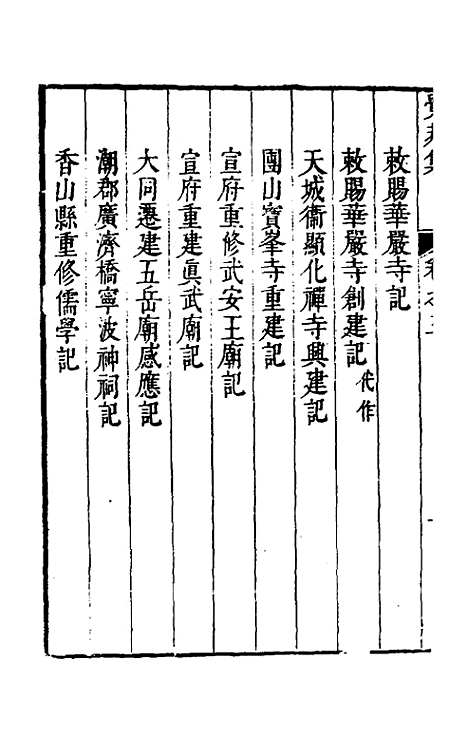 敕賜華嚴寺記
敕賜華嚴寺創建記 代作
天城衞顯化禪寺興建記
團山寶峯寺重建記
宣府重修武安王廟記
宣府重建眞武廟記
大同遷建五岳廟感應記
潮郡廣濟橋寧波神祠記
香山縣重修儒學記